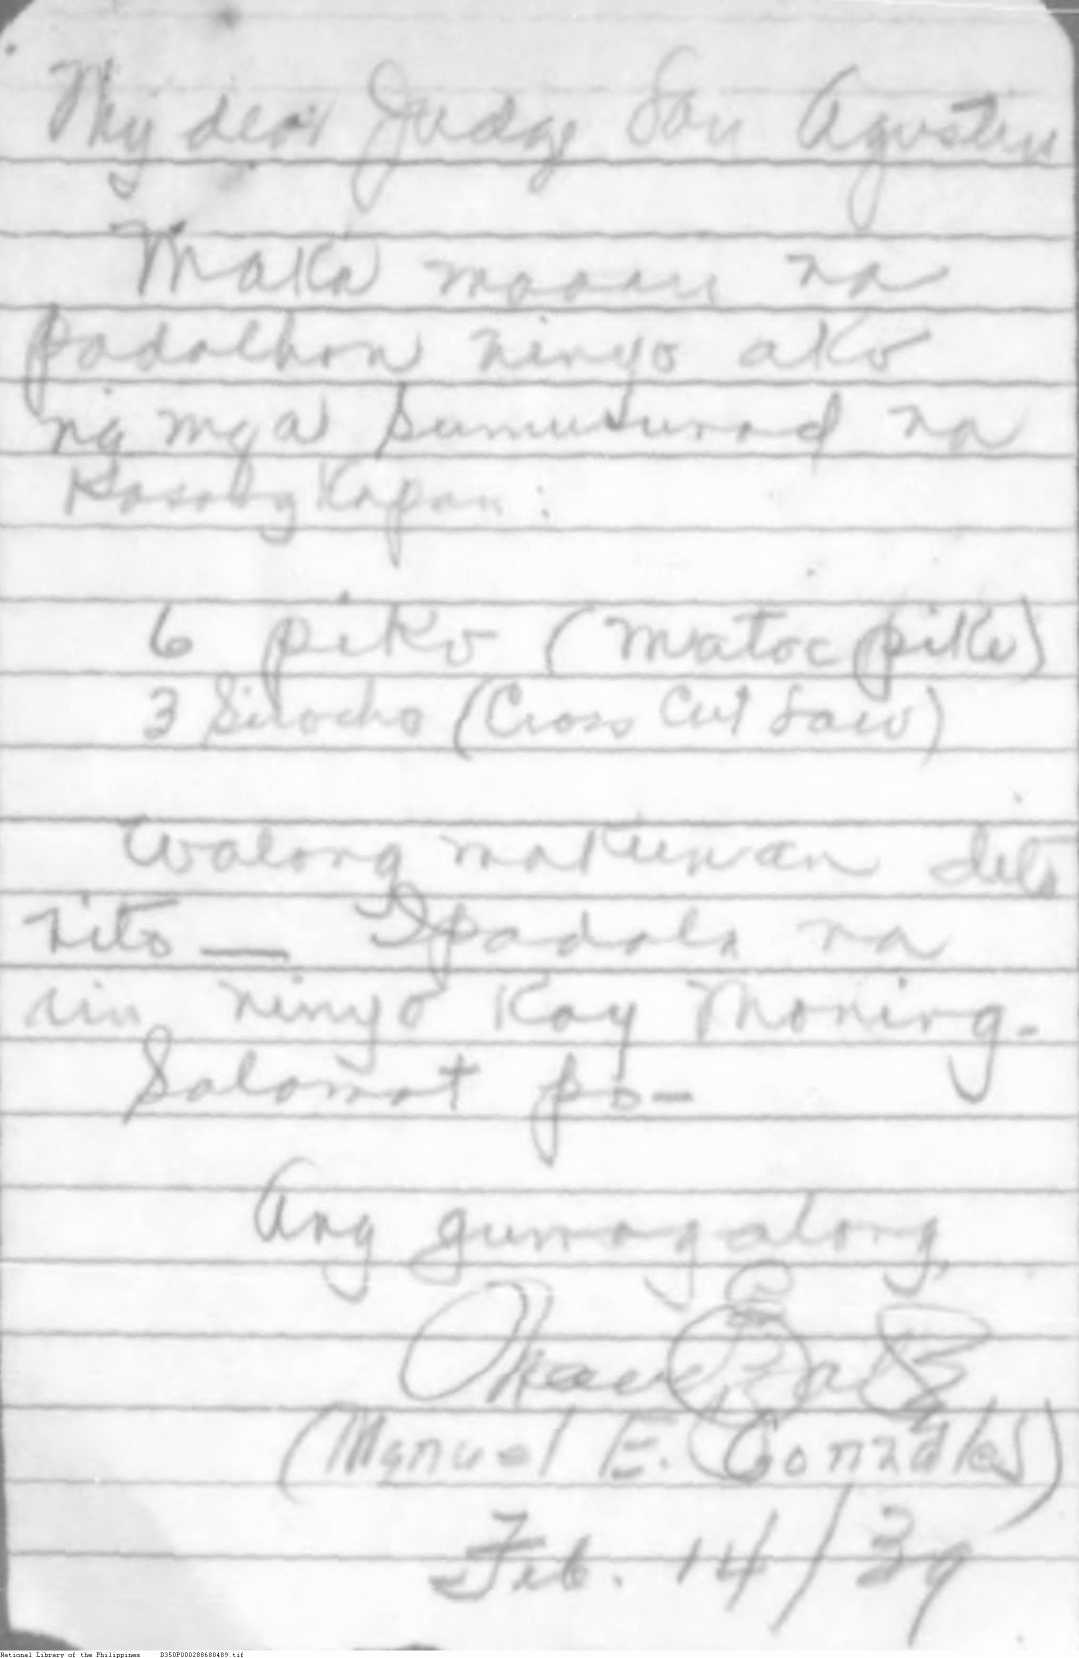 My dear Judge San Agustin
Maka maaari na
padalhan ninyo ako
ng mga sumusunod na
Kasangkapan:
6 piko (Matoc pike)
3 Silocho (Cross Cut Saw)
Walang makunan dito
nito — Ipadala na
rin ninyo kay Moning.
Salamat po—
Ang gumagalang,
(Manuel E. Gonzales)
Feb. 14/39
National Library of the Philippines